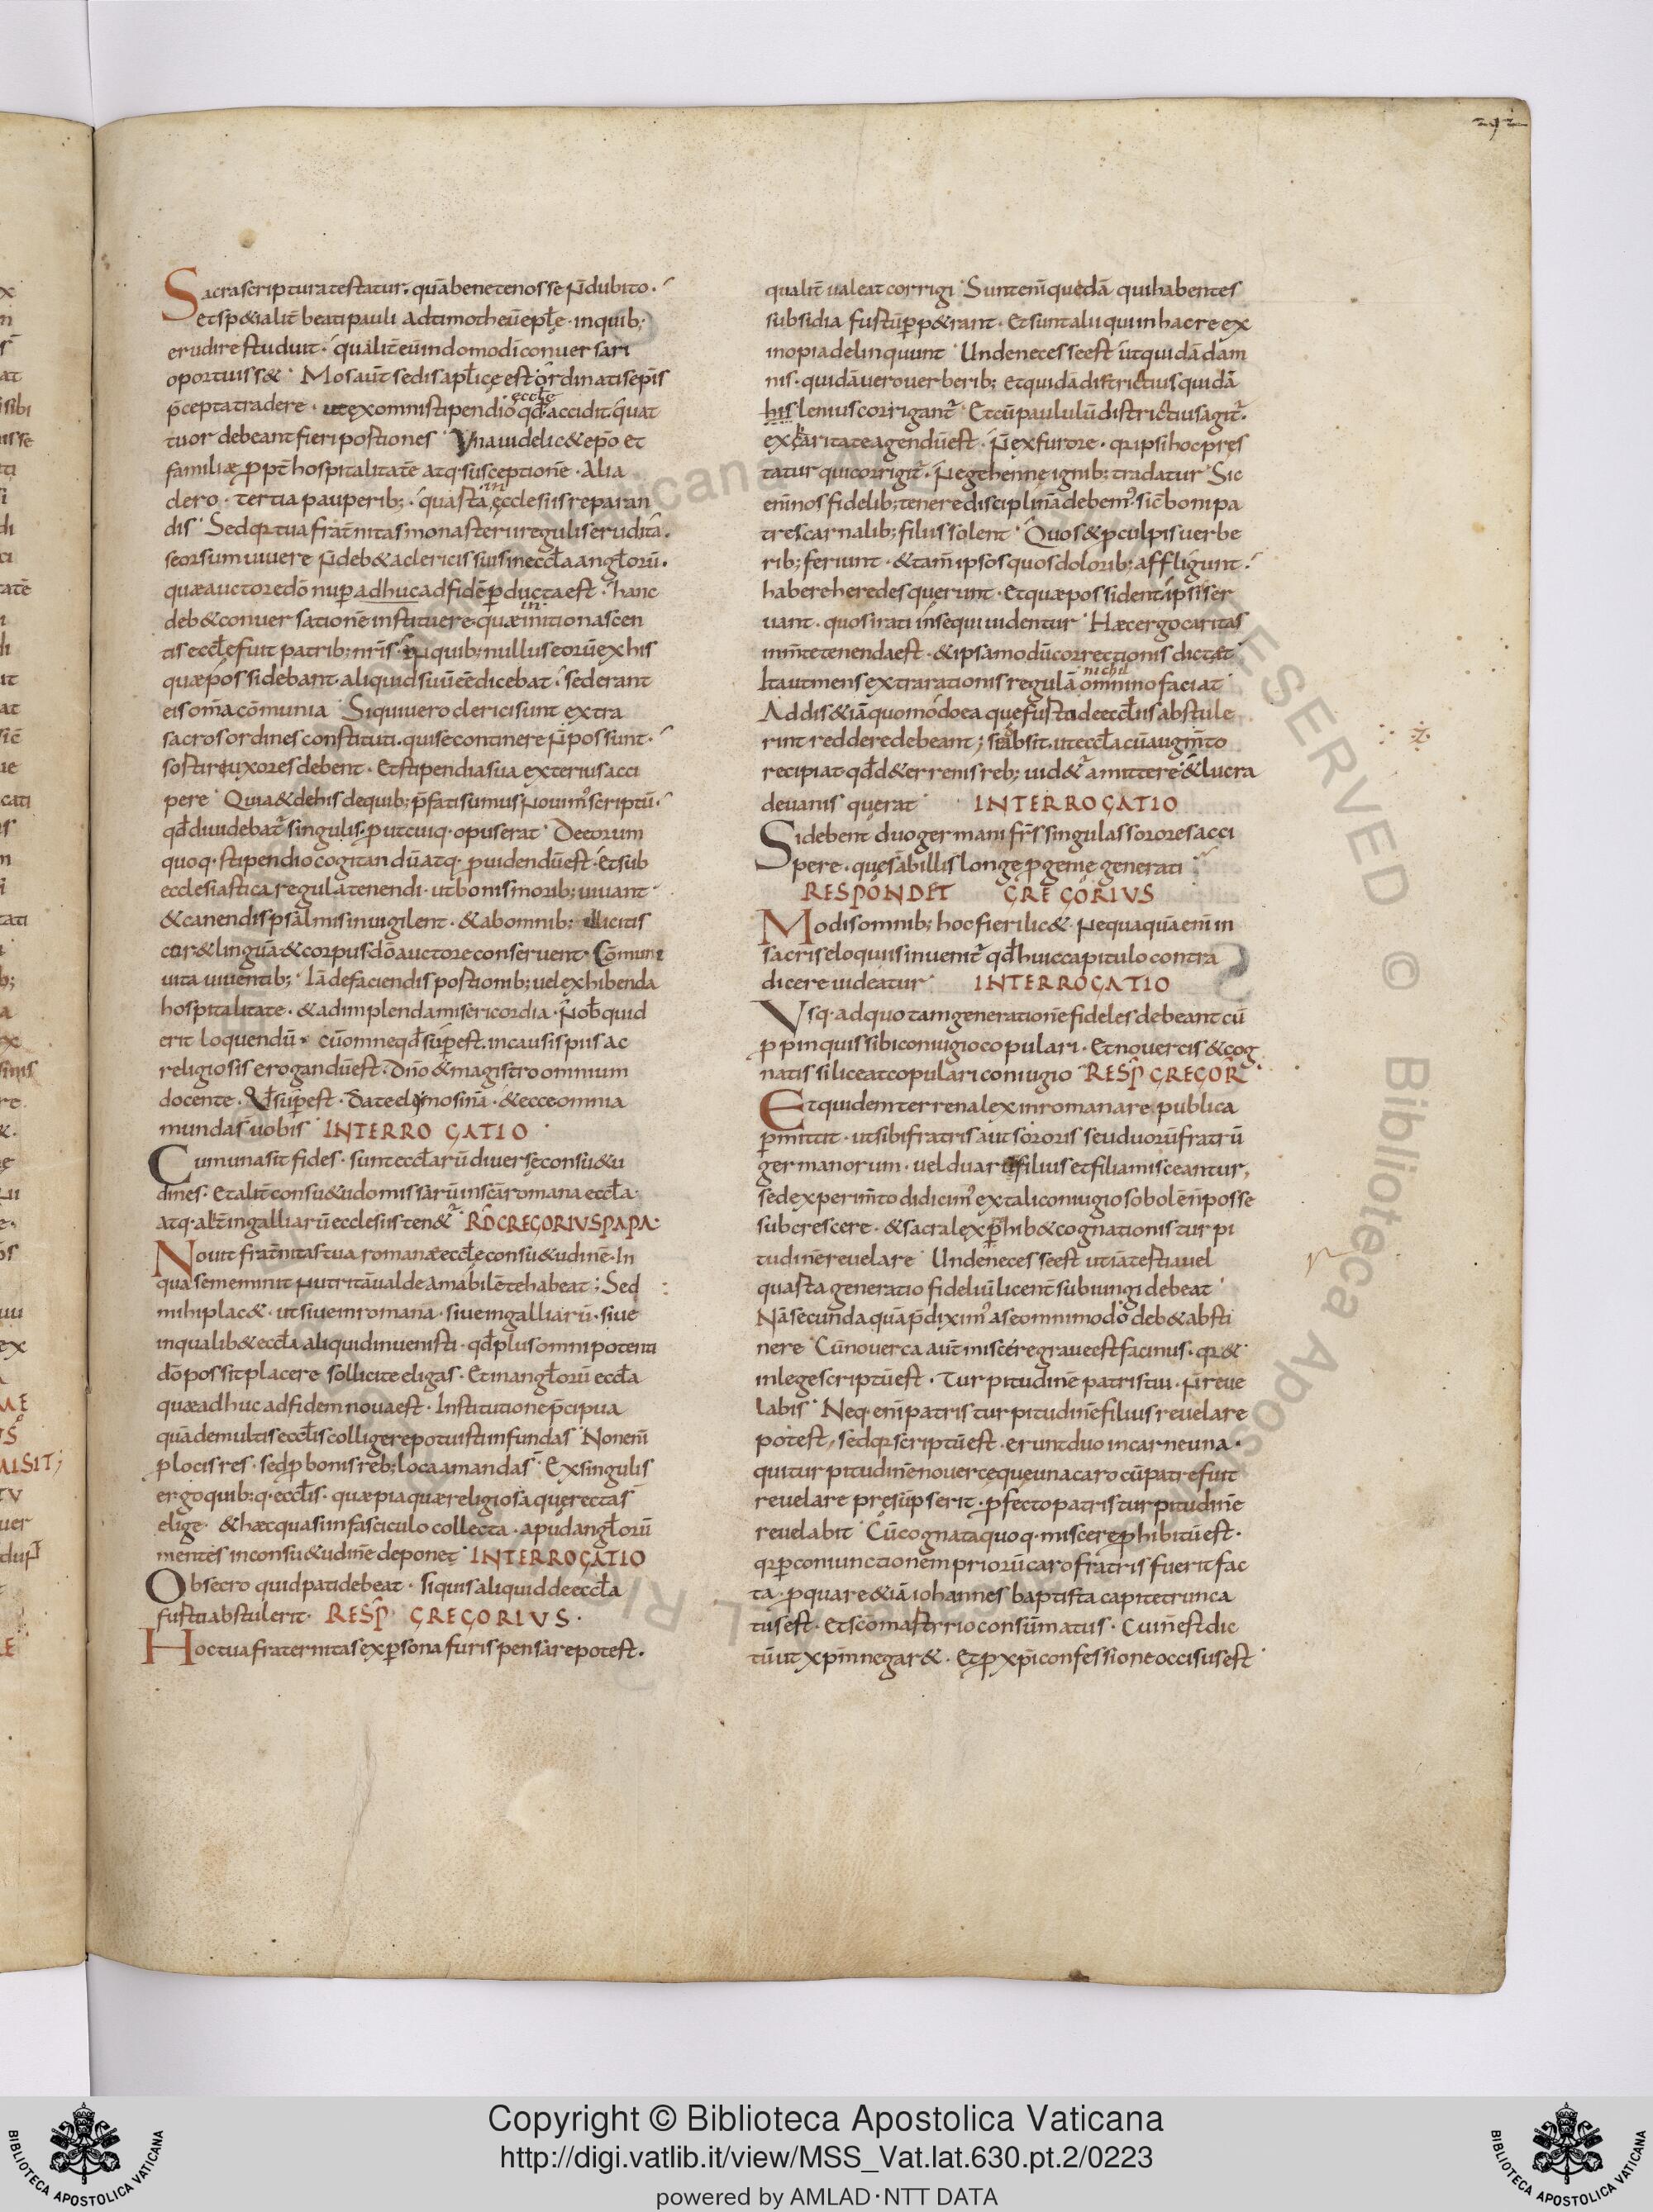 292
Sacra scriptura testatur. quā bene te nosse ñ dubito.
et sp&ialit̄ beati pauli ad timotheū epłę. inquib;
erudire studuit. qualit̄ eū in domo dī conuersari
oportuiss& Mos aut̄ sedis aplicę est ordinatis ep̄is
p̄cepta tradere. ut ex omni stipendio ęccłę qd̄ accidit quat
tuor debeant fieri postiones Vna uidelic& ep̄o et
familiæ ꝓpt̄ hospitalitatē atq· susceptionē. Alia
clero. tertia pauperib;. quasta in ęcclesiis reparan
dis Sed qr tua frat̄nitas monasterii regulis erudita.
seorsum uiuere ñ deb& a clericis suis in eccła angłorū.
quæ auctore dō nup̄ adhuc ad fidē ꝑducta est. hanc
deb& conuersationē instituere quæ in initio nascen
tis eccłę fuit patrib; nr̄is. in quib; nullus eorū ex his
quæ possidebant aliquid suū eē dicebat. sed erant
eis om̄a cōmunia Siqui uero clerici sunt extra
sacros ordines constituti. qui se continere ñ possunt.
sostire uxores debent. Et stipendia sua exterius acci
pere Quia & de his de quib; p̄fati sumus nouim' scriptū.
qd̄ diuidebat̄ singulis. ꝓut cuiq· opus erat De eorum
quoq· stipendio cogitandū atq· ꝓuidendū est. Et sub
ecclesiastica regula tenendi. ut bonis morib; uiuant
& canendis psalmis inuigilent. & ab omnib; illicitis
cor & linguā & corpus dō auctore conseruent. Cōmuni
uita uiuentib; Iā de faciendis postionib; uel exhibenda
hospitalitate. & adimplenda misericordia. ñob̄ quid
erit loquendū. cū omne qd̄ sup̄est. in causis piis ac
religiosis erogandū est. Dn̄o & magistro omnium
docente. Qd̄ sup̄est. date elymosinā. & ecce omnia
munda s̄ uobis INTERROGATIO
Cum una sit fides. sunt eccłarū diuersę consu&u
dines. Et alit̄ consu&udo missarū in sc̄a romana eccła
atq· alit̄ in galliarū ecclesiis ten&̄ RD̄ GREGORIVS PAPA·
Nouit frat̄nitas tua romanæ eccłę consu&udinē. In
qua se meminit nutritā ualde amabilē te habeat; Sed
mihi plac&. ut siue in romana. siue in galliarū. siue
in qualib& eccła aliquid inuenisti. qd̄ plus omnipotenti
dō possit placere sollicite eligas. Et in angłorū eccła
quæ adhuc ad fidem noua est. Institutione p̄cipua
quā de multis eccłis colligere potuisti infundas Non enī
ꝓ locis res. sed ꝓ bonis reb; loca amanda s̄ Ex singulis
ergo quib;q· eccłis. quæ pia quæ religiosa quę recta s̄
elige. & hæc quasi in fasciculo collecta. apud angłorū
mentes in consu&udinē depone INTERROGATIO
Obsecro quid pati debeat. siquis aliquid de eccła
fusti abstulerit. RESP̄ GREGORIVS.
Hoc tua fraternitas ex ꝑsona furis pensare potest.
qualit̄ ualeat corrigi Sunt enī quedā qui habentes
subsidia fustū ꝑp&rant. Et sunt alii qui in hac re ex
inopia delinquunt Unde necesse est ut quidā dam
nis. quidā uero uerberib; et quidā districtius quidā
his lenius corrigant̄ Et cū paululū districtius agit̄.
ex caritate agendū est. ñ ex furore. qr ipsi hoc pręs
tatur qui corrigit̄. ne gehennę ignib; tradatur Sic
enī nos fidelib; tenere disciplinā debem' sic̄ boni pa
tres carnalib; filiis solent Quos & ꝓ culpis uerbe
rib; feriunt. & tam̄ ipsos quos dolorib; affligunt.
habere heredes querunt. Et quæ possident ipsis ser
uant. quos irati insequi uidentur Hæc ergo caritas
in m̄te tenenda est. & ipsa modū correctionis dictat
Ita ut mens extra rationis regulā omnino nichil faciat
Addis &iā quomodo ea quę fustu de eccłiis abstule
rint reddere debeant; s; absit. ut eccła cū augm̄to
recipiat qd̄ d& errenis reb; uid&̄ amittere & lucra
de uanis querat INTERROGATIO
Si debent duo germani fr̄s singulas sorores acci
pere. quę s̄ ab illis longę ꝓgenię generati
RESPONDET GREGORIVS
Modis omnib; hoc fieri lic&. nequaquā enī in
sacris eloquiis inuenit̄ qd̄ huic capitulo contra
dicere uideatur INTERROGATIO
Vsq· ad quotam generationē fideles debeant cū
ꝓpinquis sibi coniugio copulari. Et nouercis & cog
natis si liceat copulari coniugio RESP̄ GREGOR̄
Et quidem terrena lex in romana re publica
ꝑmittit. ut sibi fratris aut sororis seu duorū fratrū
germanorum. uel duarū filius et filia misceantur,
sed experim̄to didicim' ex tali coniugio sobolē ñ posse
subcrescere. & sacra lex ꝓhib& cognationis turpi
tudinē reuelare Unde necesse est ut iā testia uel
quasta generatio fideliū licent̄ sub iungi debeat
Nā secunda quā p̄dixim' a se omnimodo deb& absti
nere Cū nouerca aut̄ miscere graue est facinus. qr &
in lege scriptū est. Turpitudinē patris tui. ñ reue
labis Neq· enī patris turpitudinē filius reuelare
potest, sed qr scriptū est. erunt duo in carne una.
qui turpitudinē nouercę quę una caro cū patre fuit
reuelare pręsūpserit. ꝓfecto patris turpitudinē
reuelabit Cū cognata quoq· miscere ꝓhibitū est.
qr ꝑ coniunctionem priorū caro fratris fuerit fac
ta. ꝓ qua re &iā iohannes baptista capite trunca
tus est. Et sc̄o mastrrio consūmatus. Cui ñ est dic
tū ut xp̄m negar&. Et ꝓ xp̄i confessione occisus est
Copyright © Biblioteca Apostolica Vaticana
http://digi.vatlib.it/view/MSS_Vat.lat.630.pt.2/0223
powered by AMLAD·NTT DATA
BIBLIOTECA APOSTOLICA VATICANA
BIBLIOTECA APOSTOLICA VATICANA